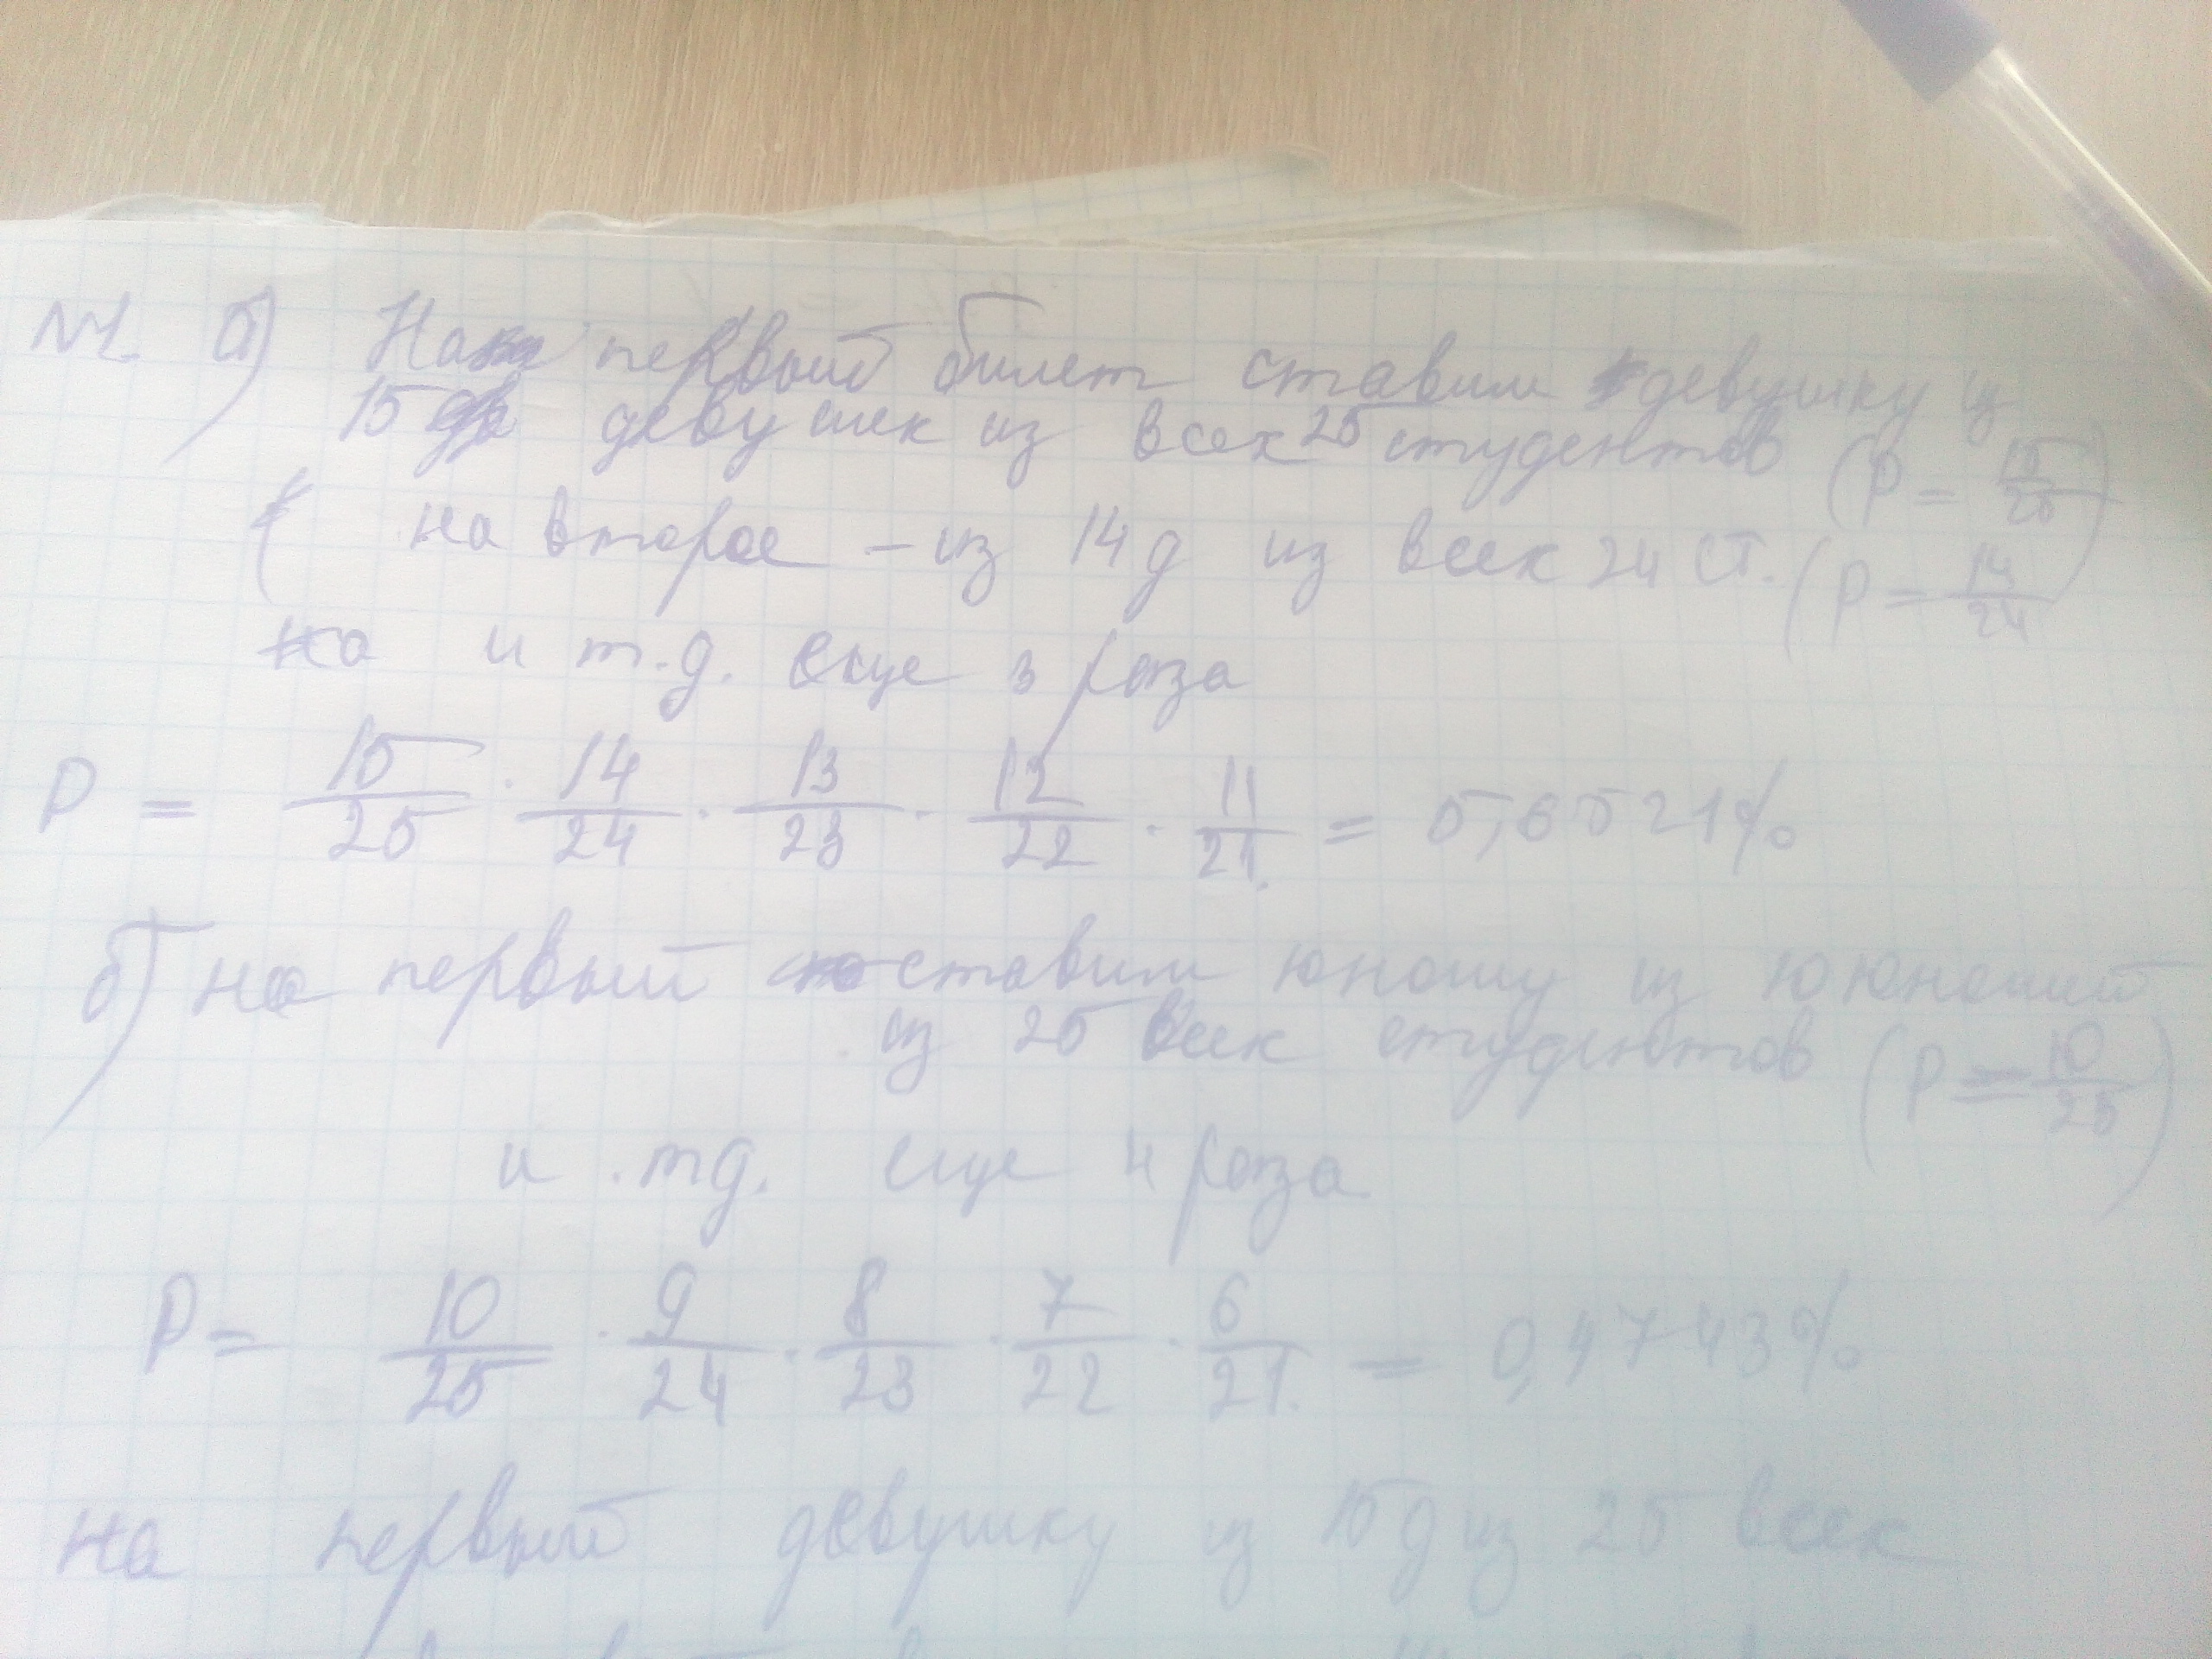 №1. а) На первый билет ставим девушку из
15 девушек из всех 25 студентов (P = 15/25)
на второе – из 14 д из всех 24 ст. (P = 14/24)
на и т.д. еще 3 раза
P = 15/25 · 14/24 · 13/23 · 12/22 · 11/21 = 5,6521%
б) на первый ставим юношу из 10 юношей
из 25 всех студентов (P = 10/25)
и тд. еще 4 раза
P = 10/25 · 9/24 · 8/23 · 7/22 · 6/21 = 0,4743%
на первый девушку из 15 д из 25 всех